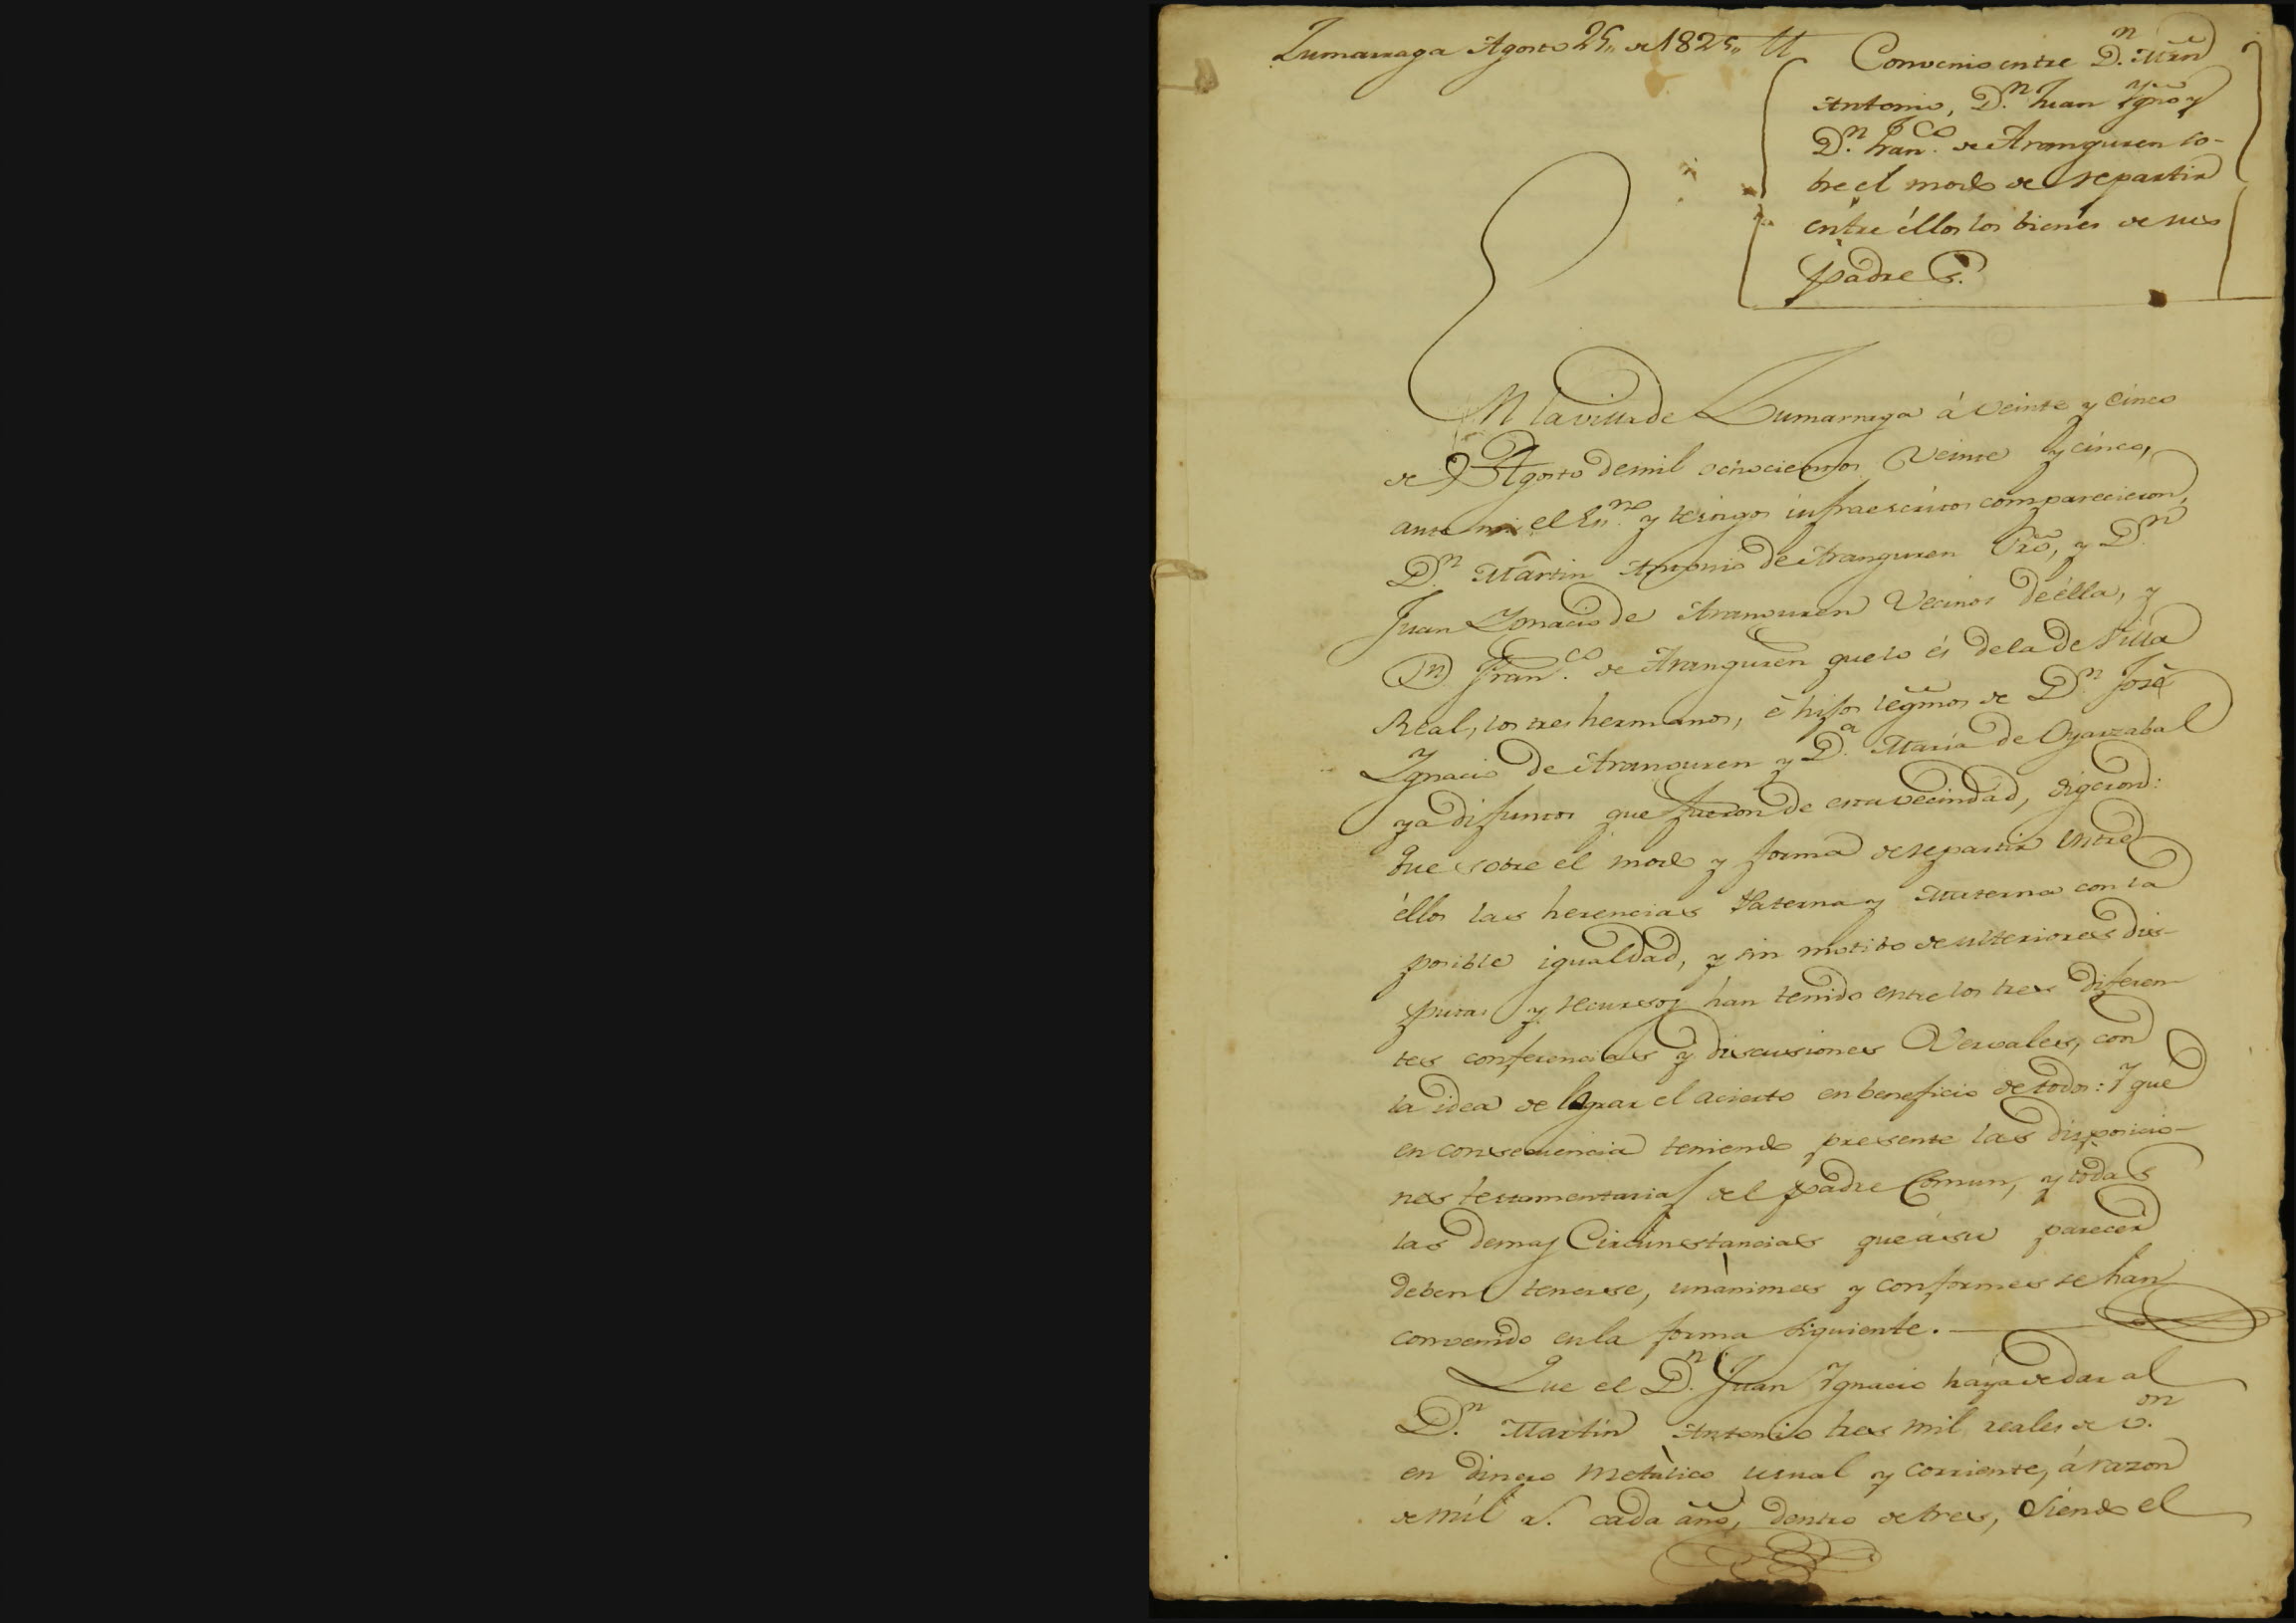 Zumarraga Agosto 25,, de 1825,,
Convenio entre D.n Mrn
Antonio, D.n Juan Ygno y
D.n Fran.co de Aranguren so-
bre el modo de repartir
entre éllos los bienes de sus
padres.
En la villa de Zumarraga á veinte y cinco
de Agosto de mil ochocientos veinte y cinco,
ante mi el Esn.no y testigos infraescritos comparecieron,
D.n Martin Antonio de Aranguren Pro, y D.n
Juan Ygnacio de Aranguren vecinos de élla, y
Dn Fran.co de Aranguren que lo és de la de Villa
Real, los tres hermanos, é hijos legmos de D.n José
Ygnacio de Aranguren y D.a Maria de Oyarzabal
ya difuntos que fueron de esta vecindad, digeron:
Que sobre el modo y forma de repartir entre
éllos las herencias Paterna y Materna con la
posible igualdad, y sin motibo de ulteriores dis-
putas y recursos han tenido entre los tres diferen
tes conferencias y discusiones Vervales, con
la idea de lograr el acierto en beneficio de todos: Y que
en consecuencia teniendo presente las disposicio-
nes testamentarias del padre Comun, y todas
las demas Circunstancias que á su parecer
deben tenerse, unànimes y conformes se han
convenido en la forma siguiente.
Que el D.n Juan Ygnacio háya de dar al
D.n Martin Antonio tres mil reales de v.on
en dinero metàlico usual y corriente, á razon
de mil r.s cada año, dentro de tres, siendo el